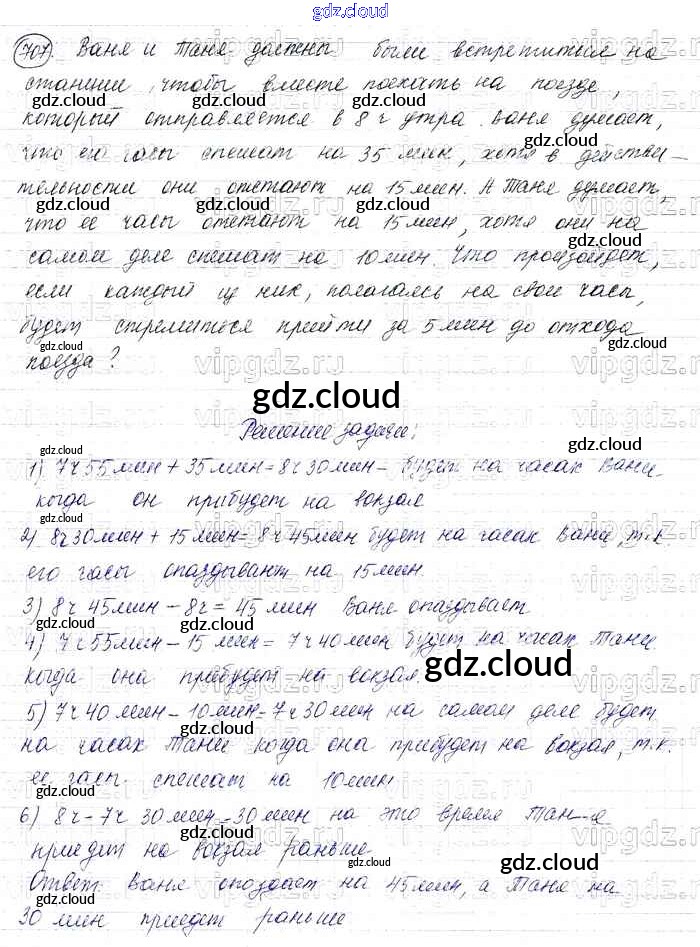 gdz.cloud
707. Ваня и Таня должны были встретиться на
станции, чтобы вместе поехать на поезде,
который отправляется в 8 ч утра. Ваня думает,
что его часы спешат на 35 мин, хотя в действи-
тельности они отстают на 15 мин. А Таня думает,
что ее часы отстают на 15 мин, хотя они на
самом деле спешат на 10 мин. Что произойдет,
если каждый из них, полагаясь на свои часы,
будет стремиться прийти за 5 мин до отхода
поезда?
gdz.cloud
Решение задачи.
1) 7 ч 55 мин + 35 мин = 8 ч 30 мин - будет на часах Вани
когда он прибудет на вокзал
2) 8 ч 30 мин + 15 мин = 8 ч 45 мин будет на часах Вани, т.к.
его часы опаздывают на 15 мин.
3) 8 ч 45 мин - 8 ч = 45 мин Ваня опаздывает
4) 7 ч 55 мин - 15 мин = 7 ч 40 мин будет на часах Тани
когда она прибудет на вокзал.
gdz.cloud
5) 7 ч 40 мин - 10 мин = 7 ч 30 мин на самом деле будет
на часах Тани когда она прибудет на вокзал, т.к.
ее часы спешат на 10 мин
6) 8 ч - 7 ч 30 мин = 30 мин на это время Тан-я
приедет на вокзал раньше
Ответ: Ваня опоздает на 45 мин, а Таня на
30 мин приедет раньше